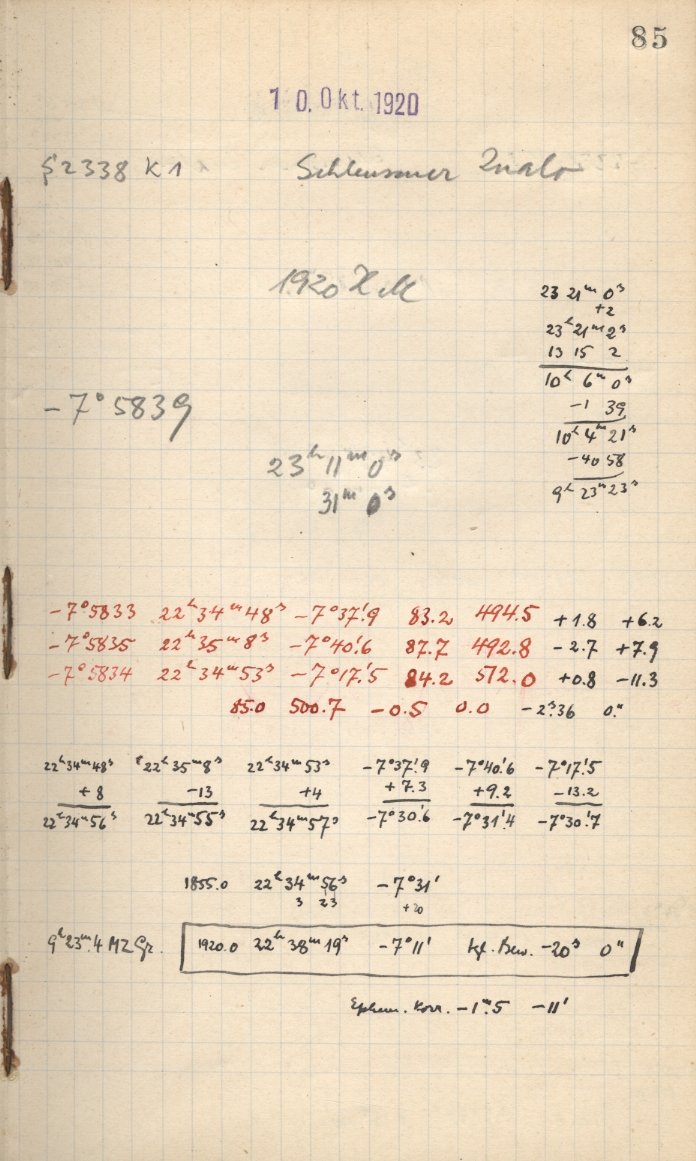 85
10. Okt. 1920
§ 2338 K 1 Schleussner
1920
23 21ᵐ 0ˢ
+2
23ʰ 21ᵐ 2ˢ
13 15 2
10ʰ 6ᵐ 0ˢ
-1 39
10ʰ 4ᵐ 21ˢ
-40 58
9ʰ 23ᵐ 23ˢ
-7° 5839
23ʰ 11ᵐ 0ˢ
31ᵐ 0ˢ
-7° 5833 22ʰ 34ᵐ 48ˢ -7° 37!9 83.2 494.5 +1.8 +6.2
-7° 5835 22ʰ 35ᵐ 8ˢ -7° 40!6 87.7 492.8 -2.7 +7.9
-7° 5834 22ʰ 34ᵐ 53ˢ -7° 17!5 84.2 512.0 +0.8 -11.3
85.0 500.7 -0.5 0.0 -2ˢ.36 0."
22ʰ 34ᵐ 48ˢ 22ʰ 35ᵐ 8ˢ 22ʰ 34ᵐ 53ˢ -7° 37!9 -7° 40!6 -7° 17!5
+8 -13 +4 +7.3 +9.2 -13.2
22ʰ 34ᵐ 56ˢ 22ʰ 34ᵐ 55ˢ 22ʰ 34ᵐ 57ˢ -7° 30!6 -7° 31!4 -7° 30!7
1855.0 22ʰ 34ᵐ 56ˢ -7° 31'
3 23 +20
9ʰ 23ᵐ.4 MZ Gr. 1920.0 22ʰ 38ᵐ 19ˢ -7° 11' tgl. Bew. -20ˢ 0"
Ephem. Korr. -1ᵐ.5 -11'